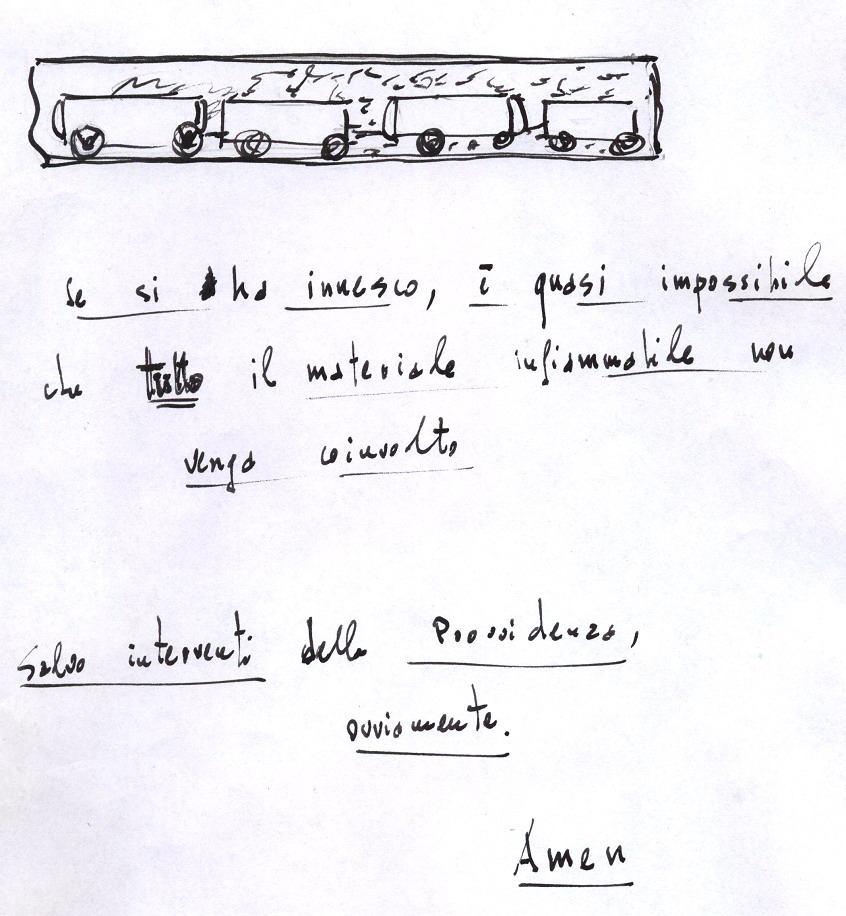 Se si ha innesco, è quasi impossibile
che tutto il materiale infiammabile non
venga coinvolto
Salvo interventi della Provvidenza,
ovviamente.
Amen